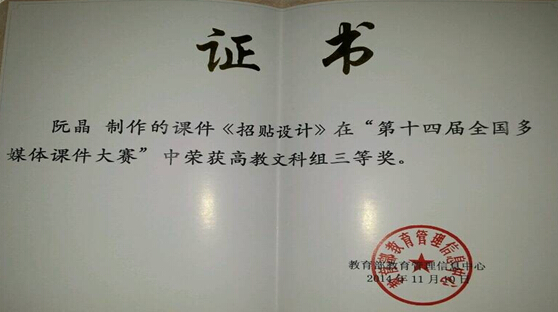 证 书
阮晶 制作的课件《招贴设计》在“第十四届全国多
媒体课件大赛”中荣获高教文科组三等奖。
教育部教育管理信息中心
教育部教育管理信息中心
2014年11月10日